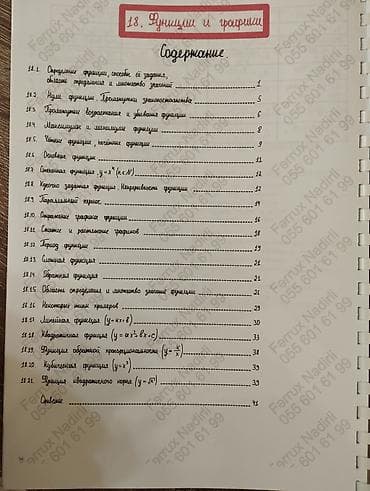 18. Функции и графики
Содержание
18.1. Определение функции, способы её задания,
область определения и множество значений 1
18.2. Нули функции. Промежутки знакопостоянства 5
18.3. Промежутки возрастания и убывания функции 6
18.4. Максимум и минимум функции 8
18.5. Чётные функции, нечётные функции 9
18.6. Основные функции 11
18.7. Степенная функция, y=xⁿ (n∈N) 12
18.8. Кусочно заданная функция. Непрерывность функции 12
18.9. Параллельный перенос 14
18.10. Отражение графика функции 16
18.11. Сжатие и растяжение графиков 18
18.12. Период функции 19
18.13. Сложная функция 21
18.14. Обратная функция 21
18.15. Область определения и множество значений функции 21
18.16. Некоторые типы примеров 29
18.17. Линейная функция (y=kx+b) 30
18.18. Квадратичная функция (y=ax²+bx+c) 33
18.19. Функция обратной пропорциональности (y=k/x) 38
18.20. Кубическая функция (y=x³) 39
18.21. Функция квадратного корня (y=√x) 39
Ответы 41
Farrux Nadimi
055 601 61 99